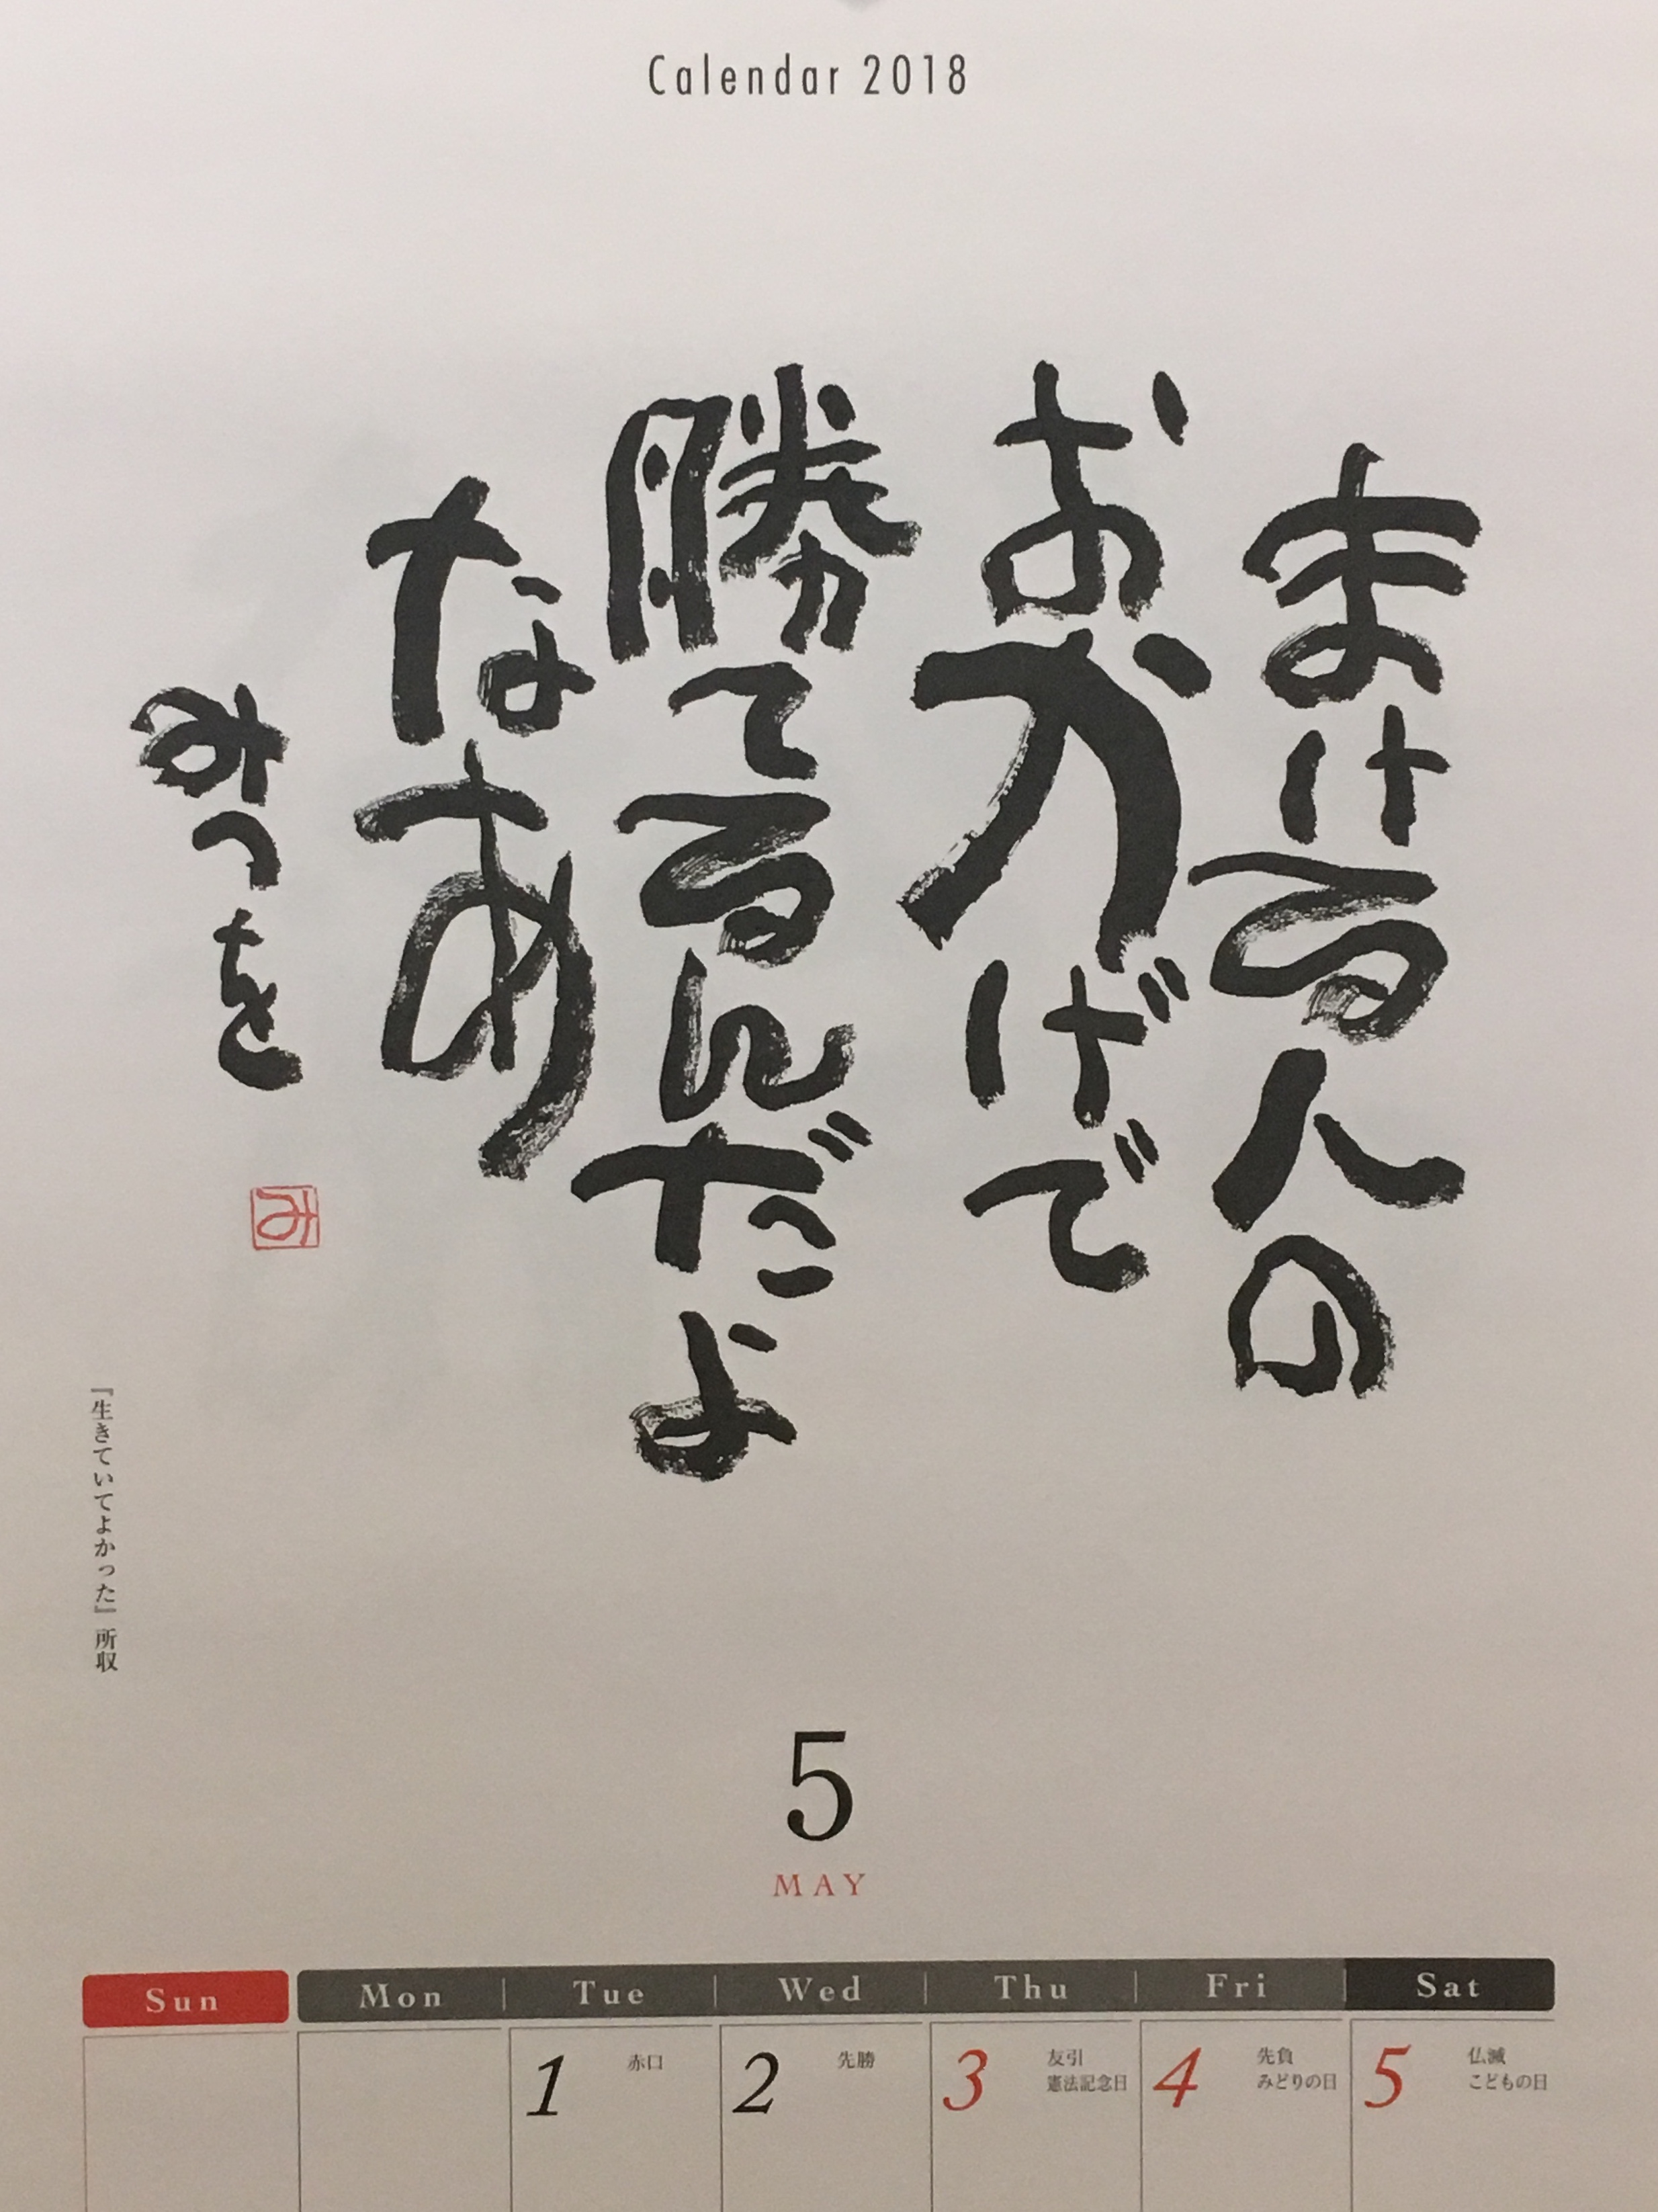 Calendar 2018
まける人の
おかげで
勝てるんだよ
なあ
みつを
み
『生きていてよかった』所収
5
MAY
Sun Mon Tue Wed Thu Fri Sat
1 赤口
2 先勝
3 友引
憲法記念日
4 先負
みどりの日
5 仏滅
こどもの日